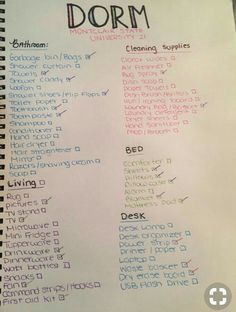 DORM
MONTCLAIR STATE
UNIVERSITY '21
Bathroom:
Garbage bin / Bags
Shower curtain
Towels
Shower caddy
Loofah
Shower slides/flip flops
Toilet paper
Toothbrush
Tooth paste
Shampoo
Conditioner
Hand soap
Hair dryer
Hair straightener
Mirror
Razors/shaving cream
Soap
Living
Rug
pictures
TV stand
TV
Microwave
Mini Fridge
Tupperware
Drinkware
Dinnerware
water bottles
Snacks
Fan
Command strips/Hooks
First aid kit
Cleaning Supplies
Clorox wipes
Air Freshner
Bug spray
Dish soap
Paper towels
Iron / ironing board
Laundry detergent
Dryer sheets
Hand sanitizer
Mop/Broom
BED
Comforter
Sheets
Pillows
Pillow case
Alarm
Blanket
Mattress Pad
DESK
Desk Lamp
Desk organizer
Power strip
Printer / paper
Laptop
Waste basket
Dry erase board
USB Flash Drive